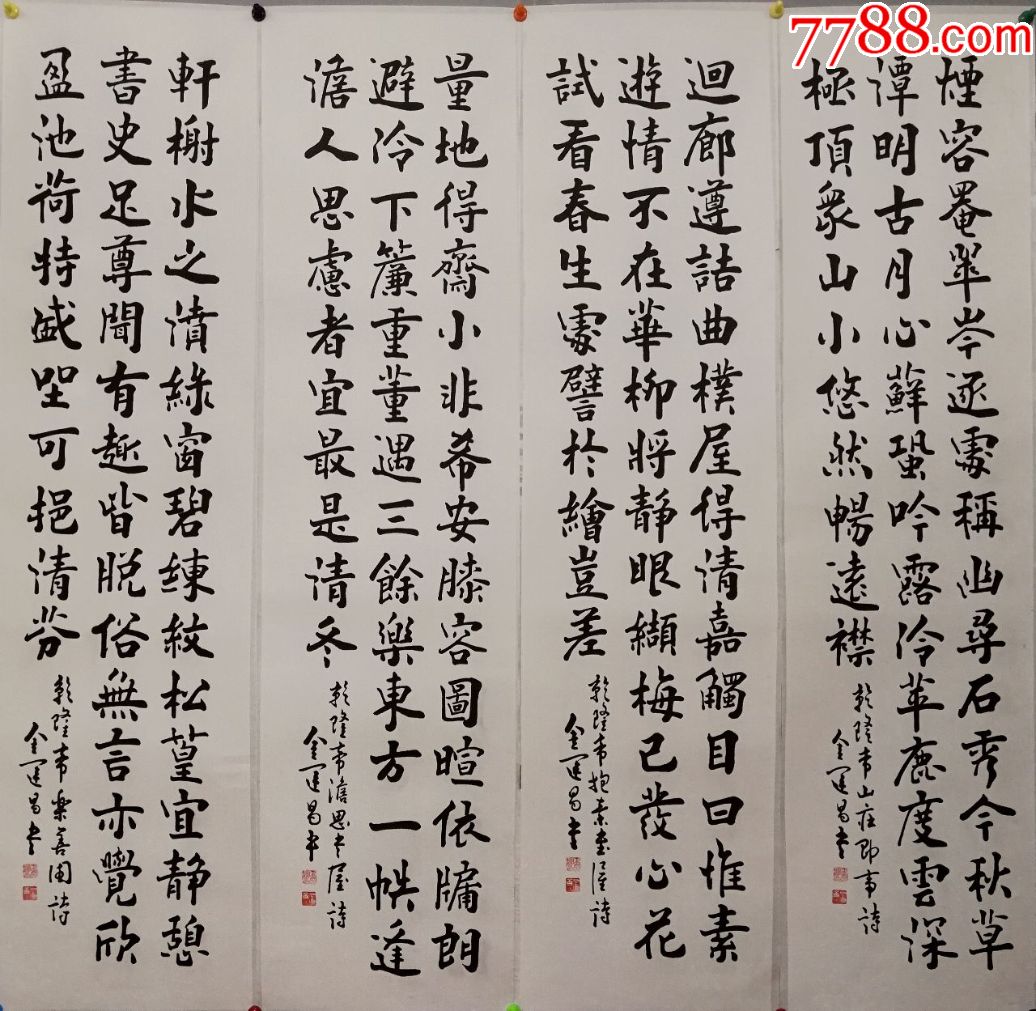 7788.com
煙容罨翠岑逐處稱幽尋石秀今秋草
潭明古月心蘚蛩吟露冷苹鹿度雲深
極頂眾山小悠然暢遠襟
乾隆帝山莊即事詩
金運昌書
迴廊遵詰曲樸屋得清嘉觸目曰惟素
遊情不在華柳將靜眼纈梅已發心花
試看春生處譬於繪豈差
乾隆帝抱素書屋詩
金運昌書
量地得齋小非希安膝容圖暄依牖朗
避冷下簾重董遇三餘樂東方一帙逢
澹人思慮者宜最是清冬
乾隆帝澹思書屋詩
金運昌書
軒榭水之濆綠窗碧練紋松篁宜靜憩
書史足尊聞有趣皆脫俗無言亦覺欣
盈池荷特盛坐可挹清芬
乾隆帝樂善園詩
金運昌書